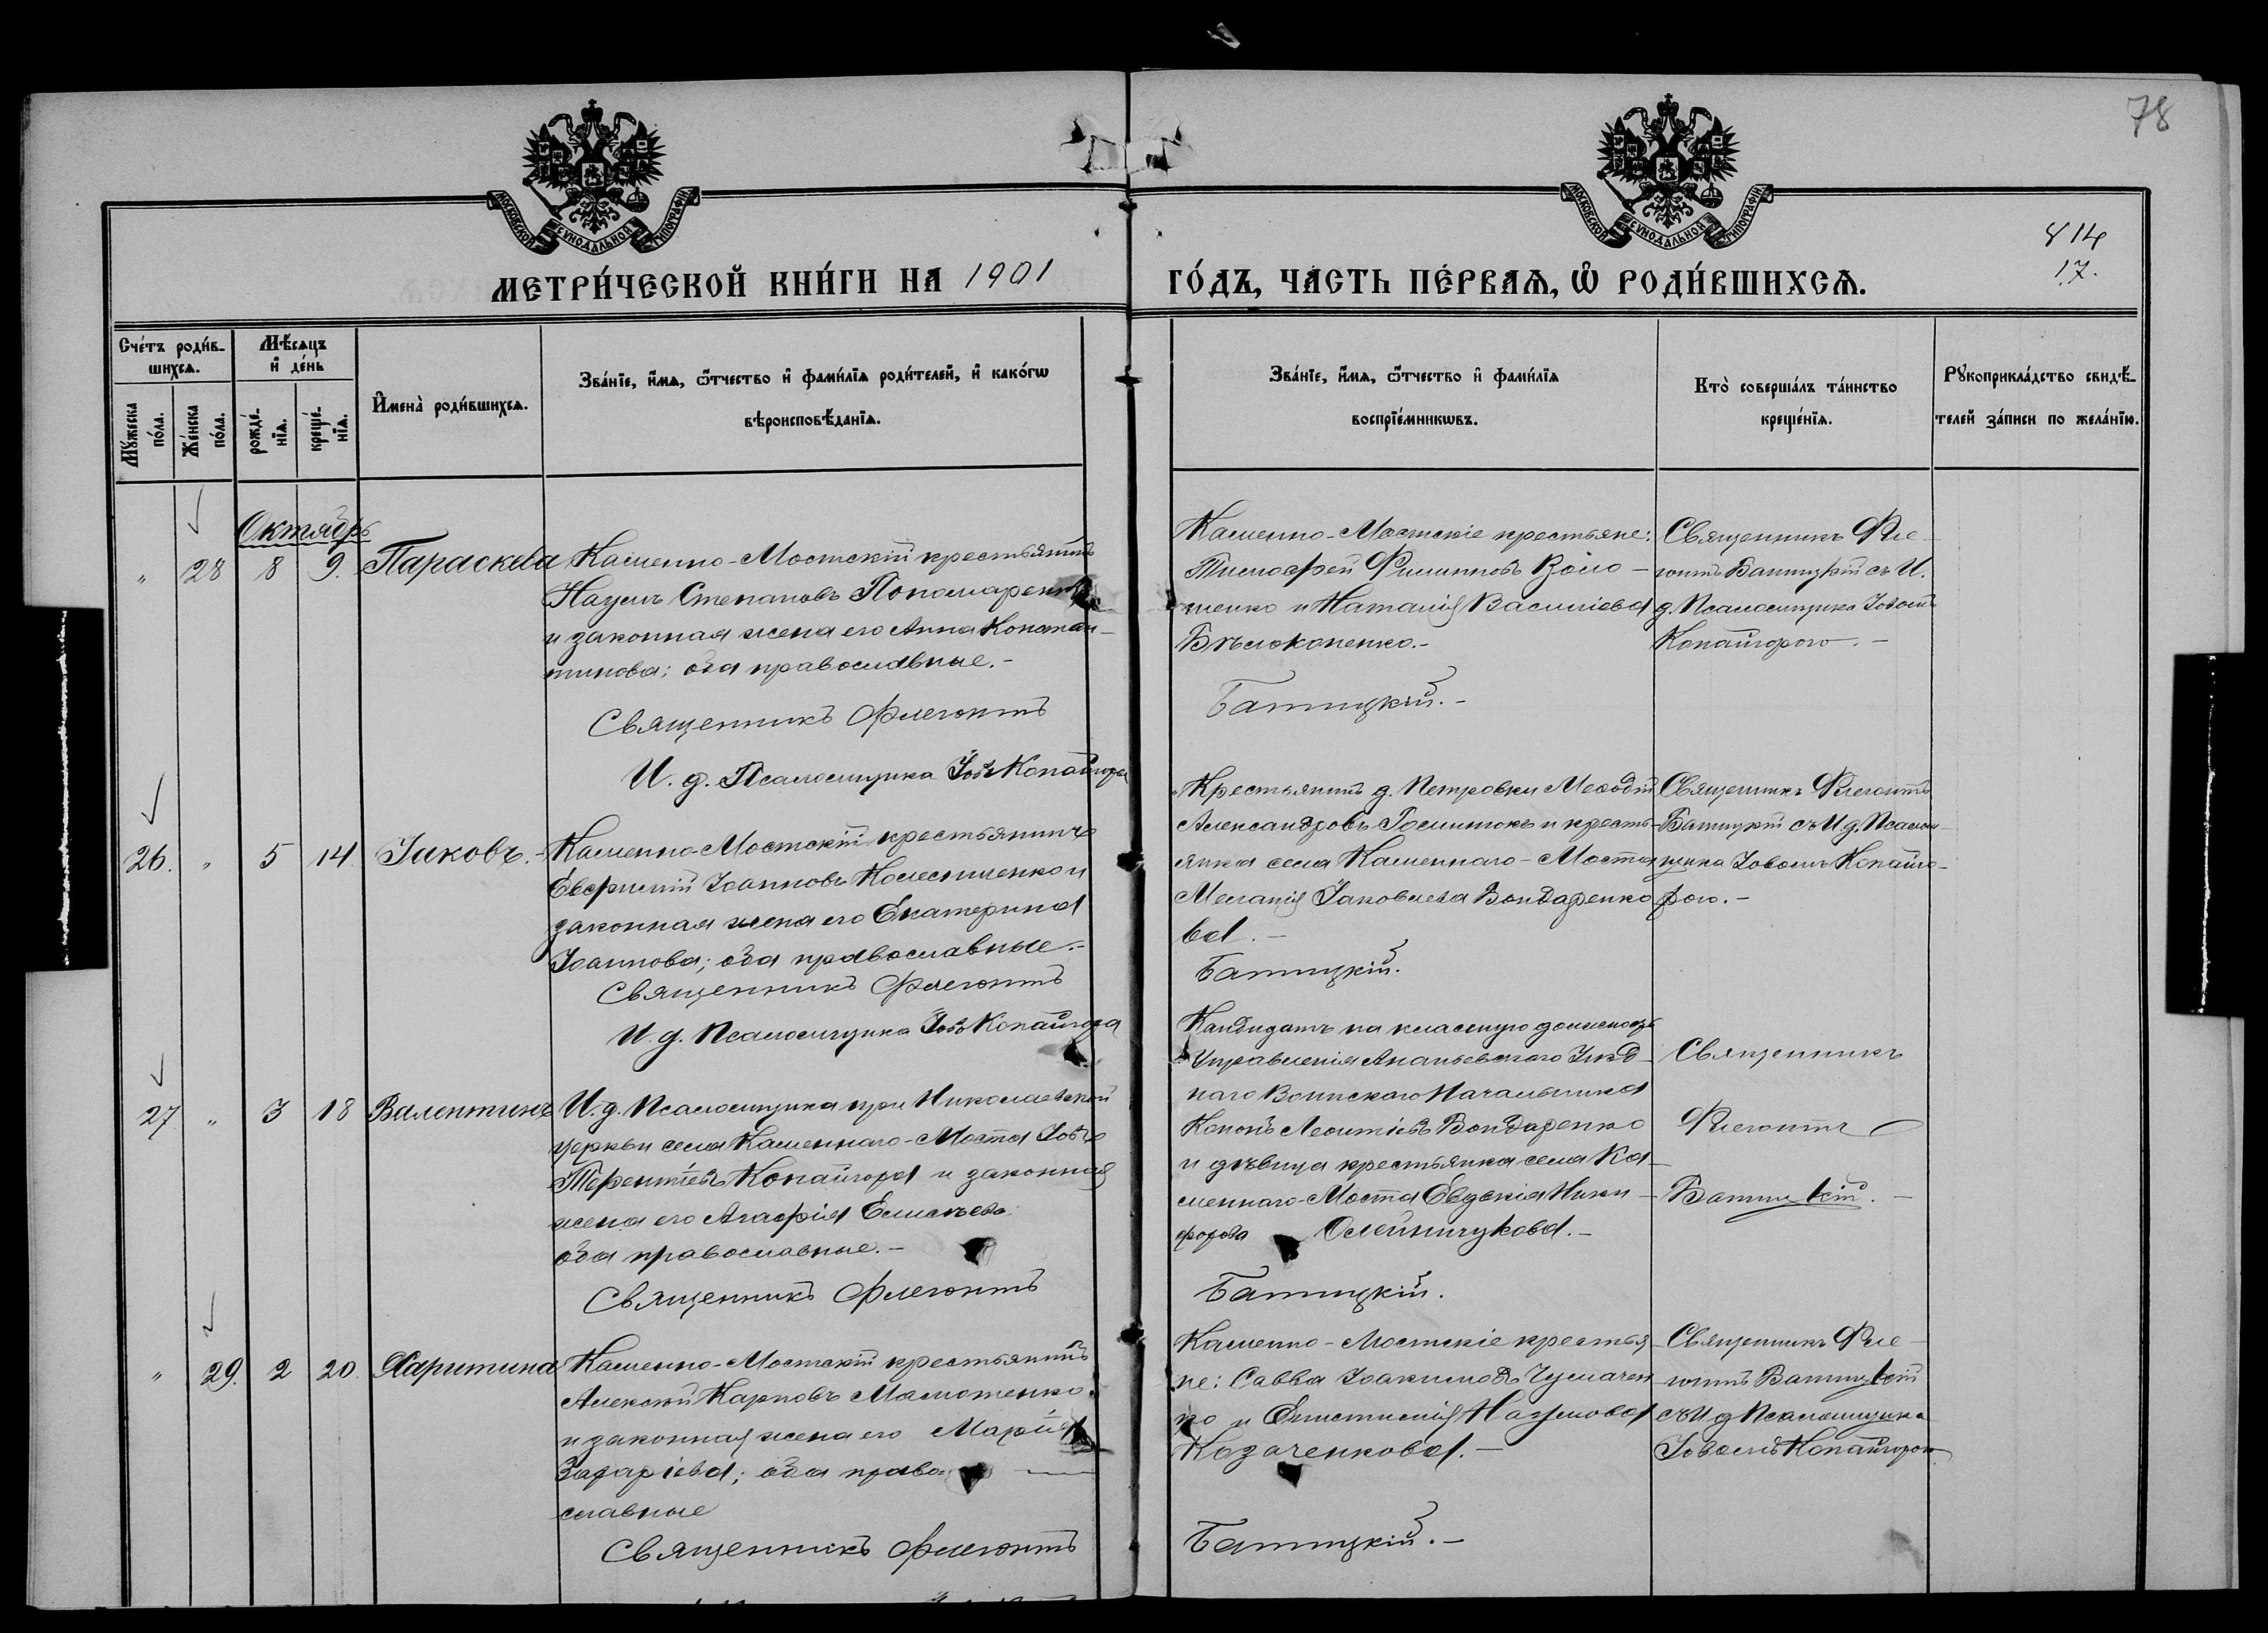 78
МОСКОВСКОЙ СУНОДАЛЬНОЙ ТИПОГРАФІИ
МОСКОВСКОЙ СУНОДАЛЬНОЙ ТИПОГРАФІИ
814
17.
МЕТРИ́ЧЕСКОЙ КНИ́ГИ НА 1901 ГО́ДЪ, ЧА́СТЬ ПЕ́РВАѦ, Ѡ҆ РОДИ́ВШИХСѦ.
Сче́тъ роди́в-
шихсѧ.
Мѣ́сѧцъ
и҆ де́нь
Мꙋ́жеска по́ла.
Же́нска по́ла.
рожде́-
нїѧ.
креще́-
нїѧ.
И҆мена̀ роди́вшихсѧ.
Зва́нїе, и҆́мѧ, ѻ҆́тчество и҆ фами́лїѧ роди́телей, и҆ како́гѡ
вѣроисповѣ́данїѧ.
Зва́нїе, и҆́мѧ, ѻ҆́тчество и҆ фами́лїѧ
воспрїе́мникѡвъ.
Кто̀ соверша́лъ та́инство
креще́нїѧ.
Рꙋкоприкла́дство свидѣ́-
телей за́писи по жела́нїю.
Октябрь
" 28 8 9. Параскева
Каменно-Мостскій крестьянинъ
Наумъ Степановъ Пономаренко
и законная жена его Анна Констан-
тинова; оба православные.-
Священникъ Флегонтъ
И. д. Псаломщика Іовъ Копайгора
Каменно-Мостскіе крестьяне:
Тимофей Филипповъ Воло-
шенко и Наталія Василіева
Бѣлоконенко.-
Батицкій.-
Священникъ Фле-
гонтъ Батицкій съ И.
д. Псаломщика Іовомъ
Копайгорою.-
26. " 5 14 Іаковъ.-
Каменно-Мостскій крестьянинъ
Евфимій Іоанновъ Колесниченко и
законная жена его Екатерина
Іоаннова; оба православные.-
Священникъ Флегонтъ
И. д. Псаломщика Іовъ Копайгора
Крестьянинъ д. Петровки Меѳодій
Александровъ и кресть-
янка села Каменнаго-Моста
Меланія Іаковлева Бондаренко
ва.-
Батицкій.
Священникъ Флегонтъ
Батицкій съ И. д. Псалом-
щика Іовомъ Копайго-
рою.-
27 " 3 18 Валентинъ
И. д. Псаломщика при Николаевской
церкви села Каменнаго-Моста Іовъ
Терентіевъ Копайгора и законная
жена его Агафія Елисѣева
оба православные.-
Священникъ Флегонтъ
Кандидатъ на классную должность
Управленія Ананьевскаго Уѣзд-
наго Воинскаго Начальника
Кононъ Леонтіевъ Бондаренко
и дѣвица крестьянка села Ка-
меннаго-Моста Евдокія Ники-
форова Олейничукова.-
Батицкій.
Священникъ
Флегонтъ
Батицкій.-
" 29. 2 20. Харитина
Каменно-Мостскій крестьянинъ
Алексій Карповъ Малютенко
и законная жена его Марія
Захаріева; оба право-
славные
Священникъ Флегонтъ
Каменно-Мостскіе крестья-
не: Савва Іоакимовъ Чумачен
ко и Епистимія Наумова
Козаченкова.-
Батицкій.-
Священникъ Фле-
гонтъ Батицкій
съ И д Псаломщика
Іовомъ Копайгорою